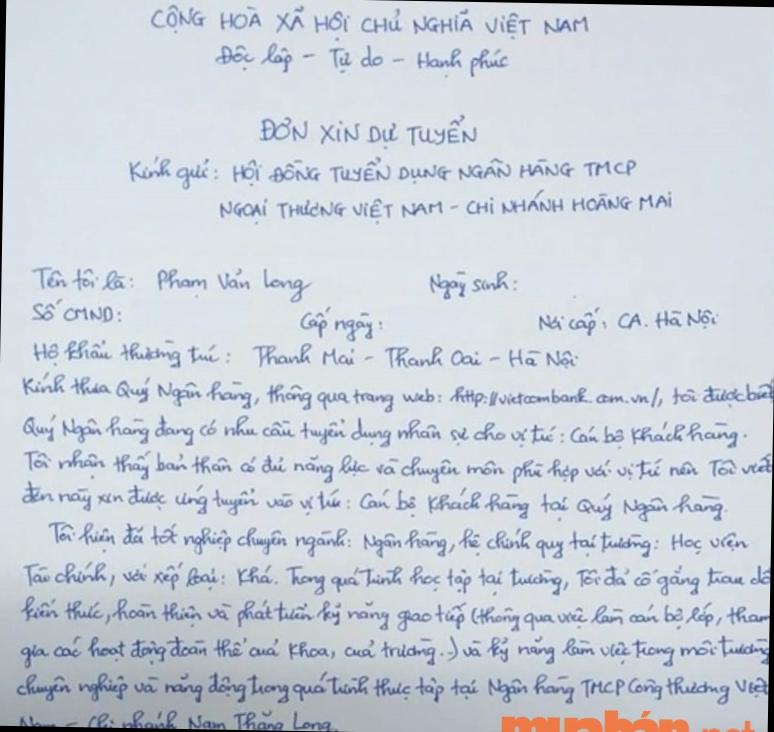 CỘNG HOÀ XÃ HỘI CHỦ NGHĨA VIỆT NAM
Độc lập - Tự do - Hạnh phúc
ĐƠN XIN DỰ TUYỂN
Kính gửi: HỘI ĐỒNG TUYỂN DỤNG NGÂN HÀNG TMCP
NGOẠI THƯƠNG VIỆT NAM - CHI NHÁNH HOÀNG MAI
Tên tôi là: Phạm Văn Long Ngày sinh:
Số CMND: Cấp ngày: Nơi cấp: CA. Hà Nội
Hộ khẩu thường trú: Thanh Mai - Thanh Oai - Hà Nội
Kính thưa Quý Ngân hàng, thông qua trang web: http://vietcombank.com.vn/, tôi được biết
Quý Ngân hàng đang có nhu cầu tuyển dụng nhân sự cho vị trí: Cán bộ Khách hàng.
Tôi nhận thấy bản thân có đủ năng lực và chuyên môn phù hợp với vị trí nên Tôi viết
đơn này xin được ứng tuyển vào vị trí: Cán bộ Khách hàng tại Quý Ngân hàng.
Tôi hiện đã tốt nghiệp chuyên ngành: Ngân hàng, hệ chính quy tại trường: Học viện
Tài chính, với xếp loại: Khá. Trong quá trình học tập tại trường, Tôi đã cố gắng trau dồi
kiến thức, hoàn thiện và phát triển kỹ năng giao tiếp (thông qua việc làm cán bộ lớp, tham
gia các hoạt động đoàn thể của Khoa, của trường..) và kỹ năng làm việc trong môi trường
chuyên nghiệp và năng động trong quá trình thực tập tại Ngân hàng TMCP Công thương Việt
Nam - Chi nhánh Nam Thăng Long.
muaban.net